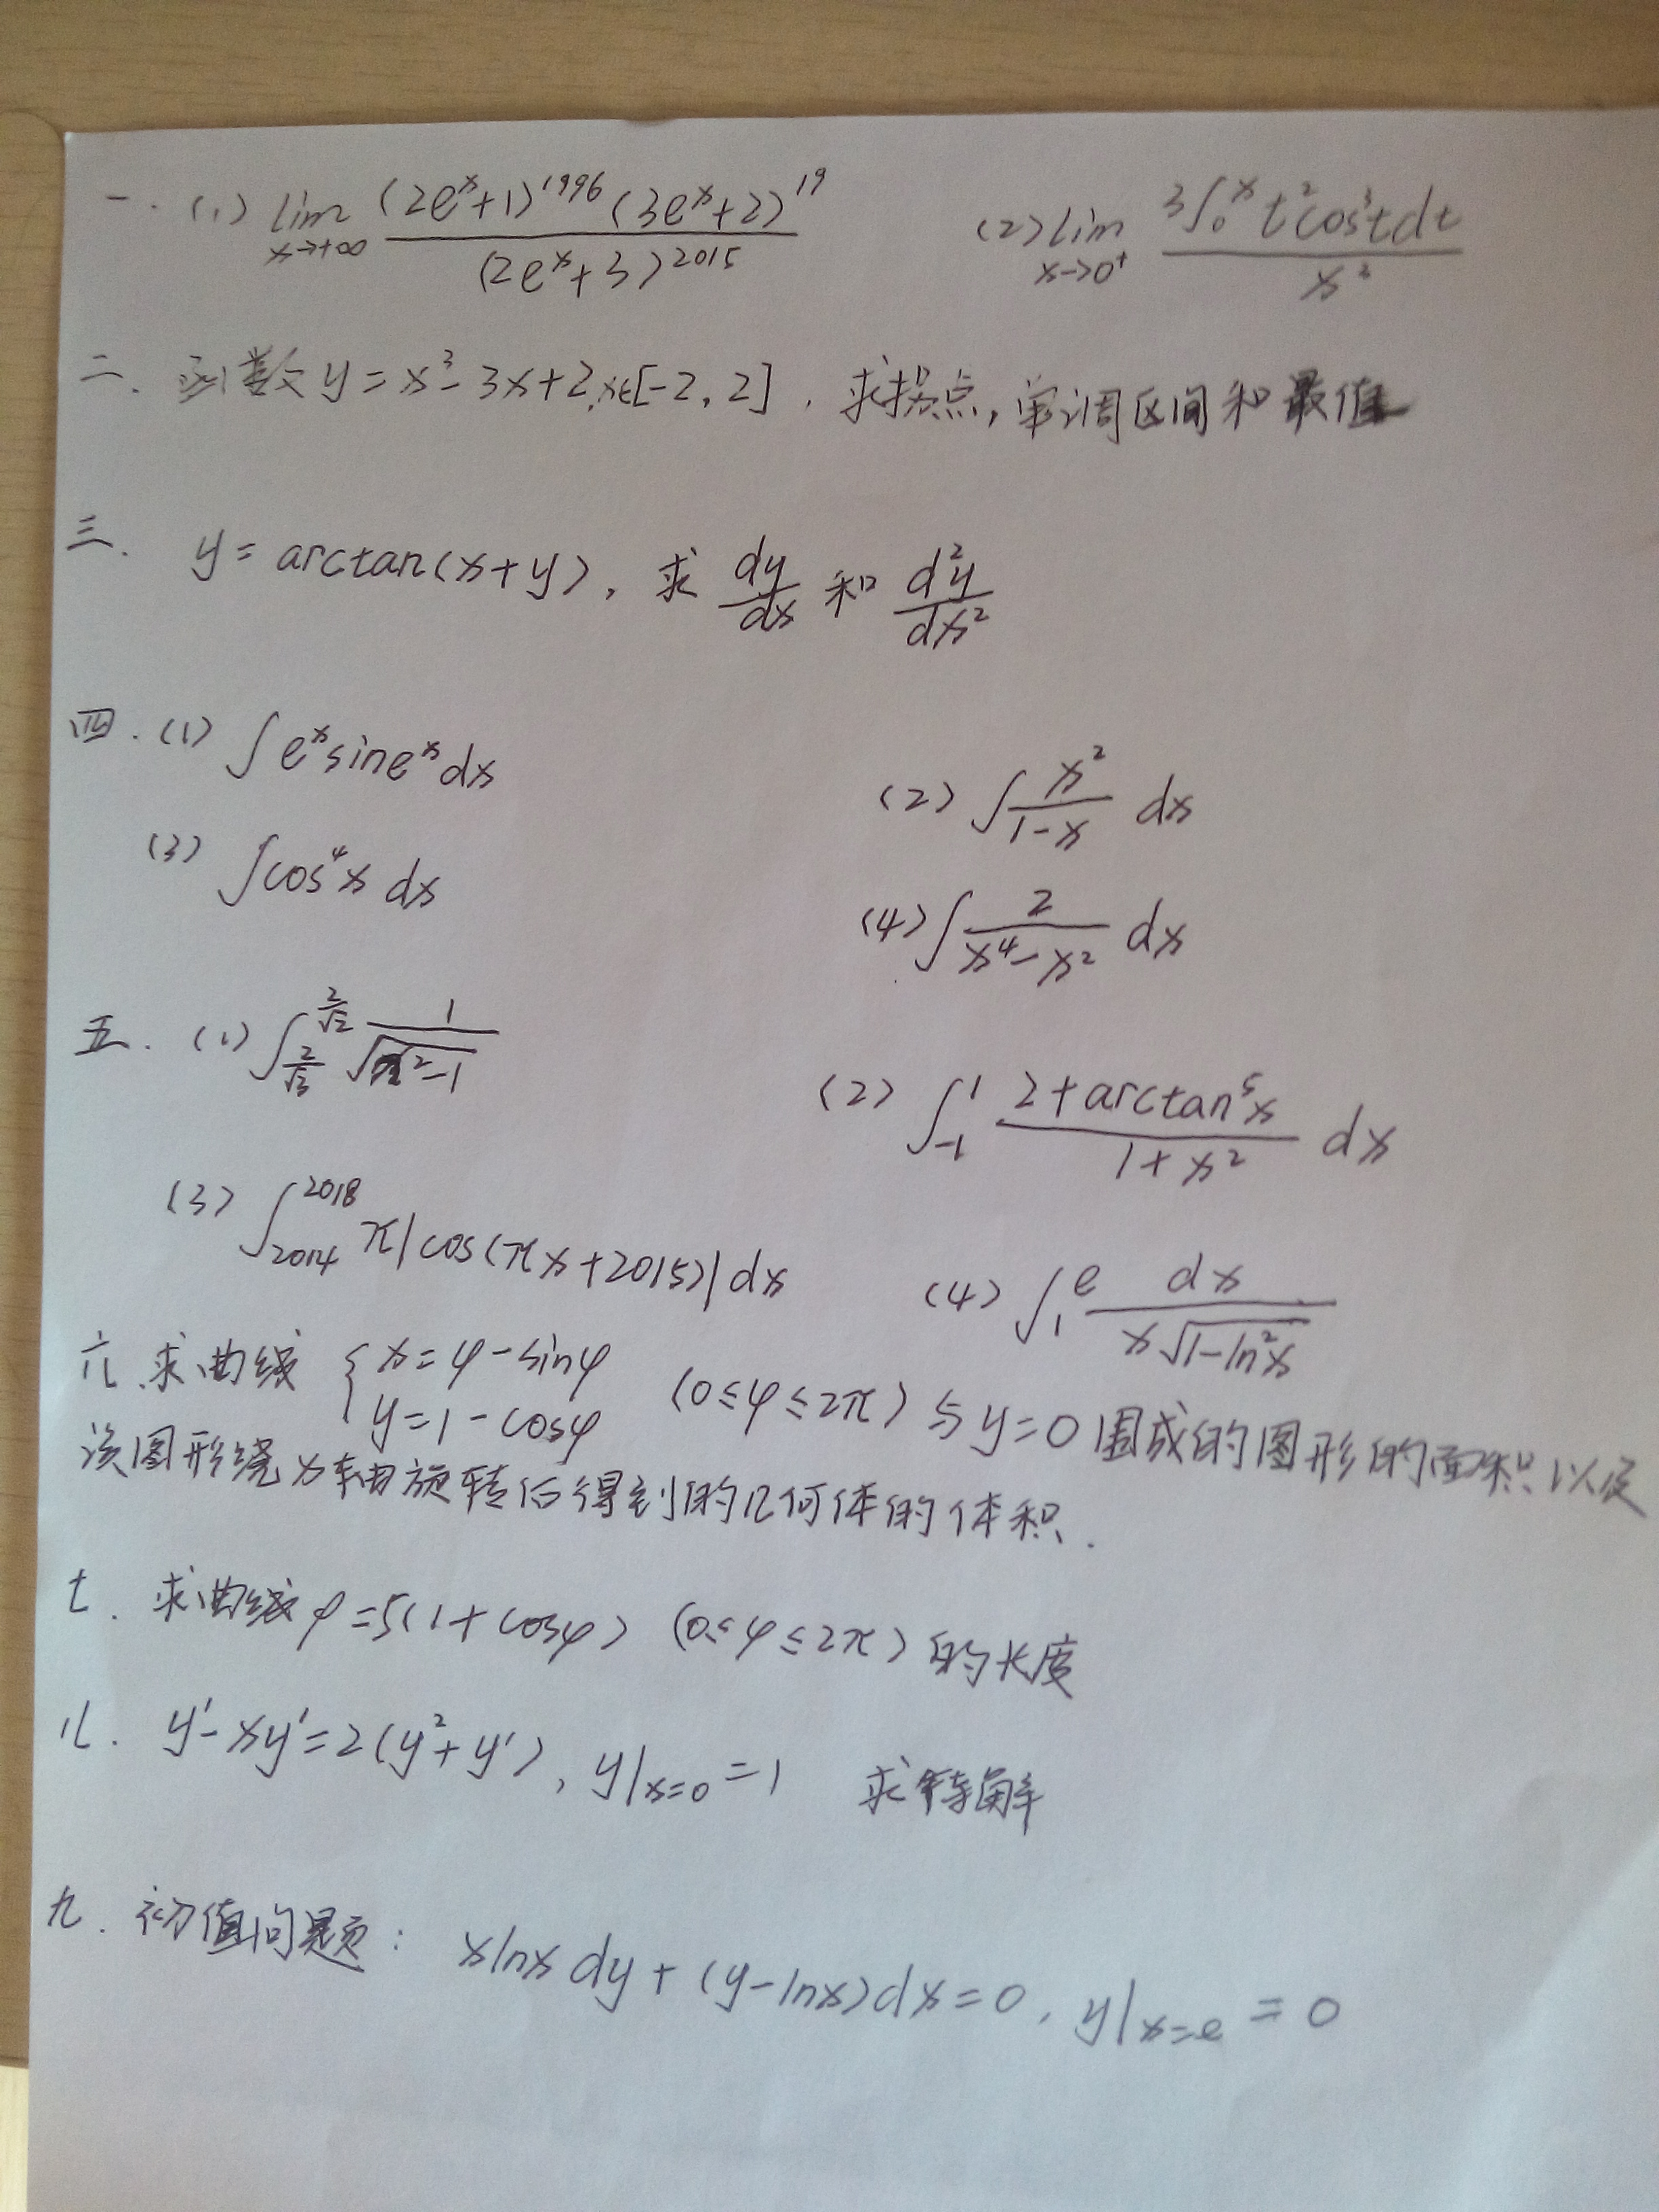 一. (1) lim x→+∞ (2eˣ+1)¹⁹⁹⁶(3eˣ+2)¹⁹ / (2eˣ+3)²⁰¹⁵ (2) lim x→0⁺ 3∫₀ˣ t²cos³tdt / x³
二. 函数y=x³-3x+2,x∈[-2,2],求拐点,单调区间和最值
三. y=arctan(x+y),求 dy/dx 和 d²y/dx²
四.(1) ∫eˣsineˣdx (2) ∫x²/(1-x) dx
(3) ∫cos⁴x dx (4) ∫2/(x⁴-x²) dx
五.(1) ∫_{2/√3}^{2/√2} 1/√(x²-1) (2) ∫_{-1}^{1} (2+arctan⁵x)/(1+x²) dx
(3) ∫_{2014}^{2018} π|cos(πx+2015)|dx (4) ∫₁ᵉ dx/(x√(1-ln²x))
六.求曲线 {x=φ-sinφ y=1-cosφ (0≤φ≤2π)与y=0围成的图形的面积以及
该图形绕x轴旋转后得到的几何体的体积.
七.求曲线ρ=5(1+cosφ) (0≤φ≤2π)的长度
八. y'-xy'=2(y²+y'), y|x=0=1 求特解
九.初值问题: xlnx dy+(y-lnx)dx=0, y|x=e=0